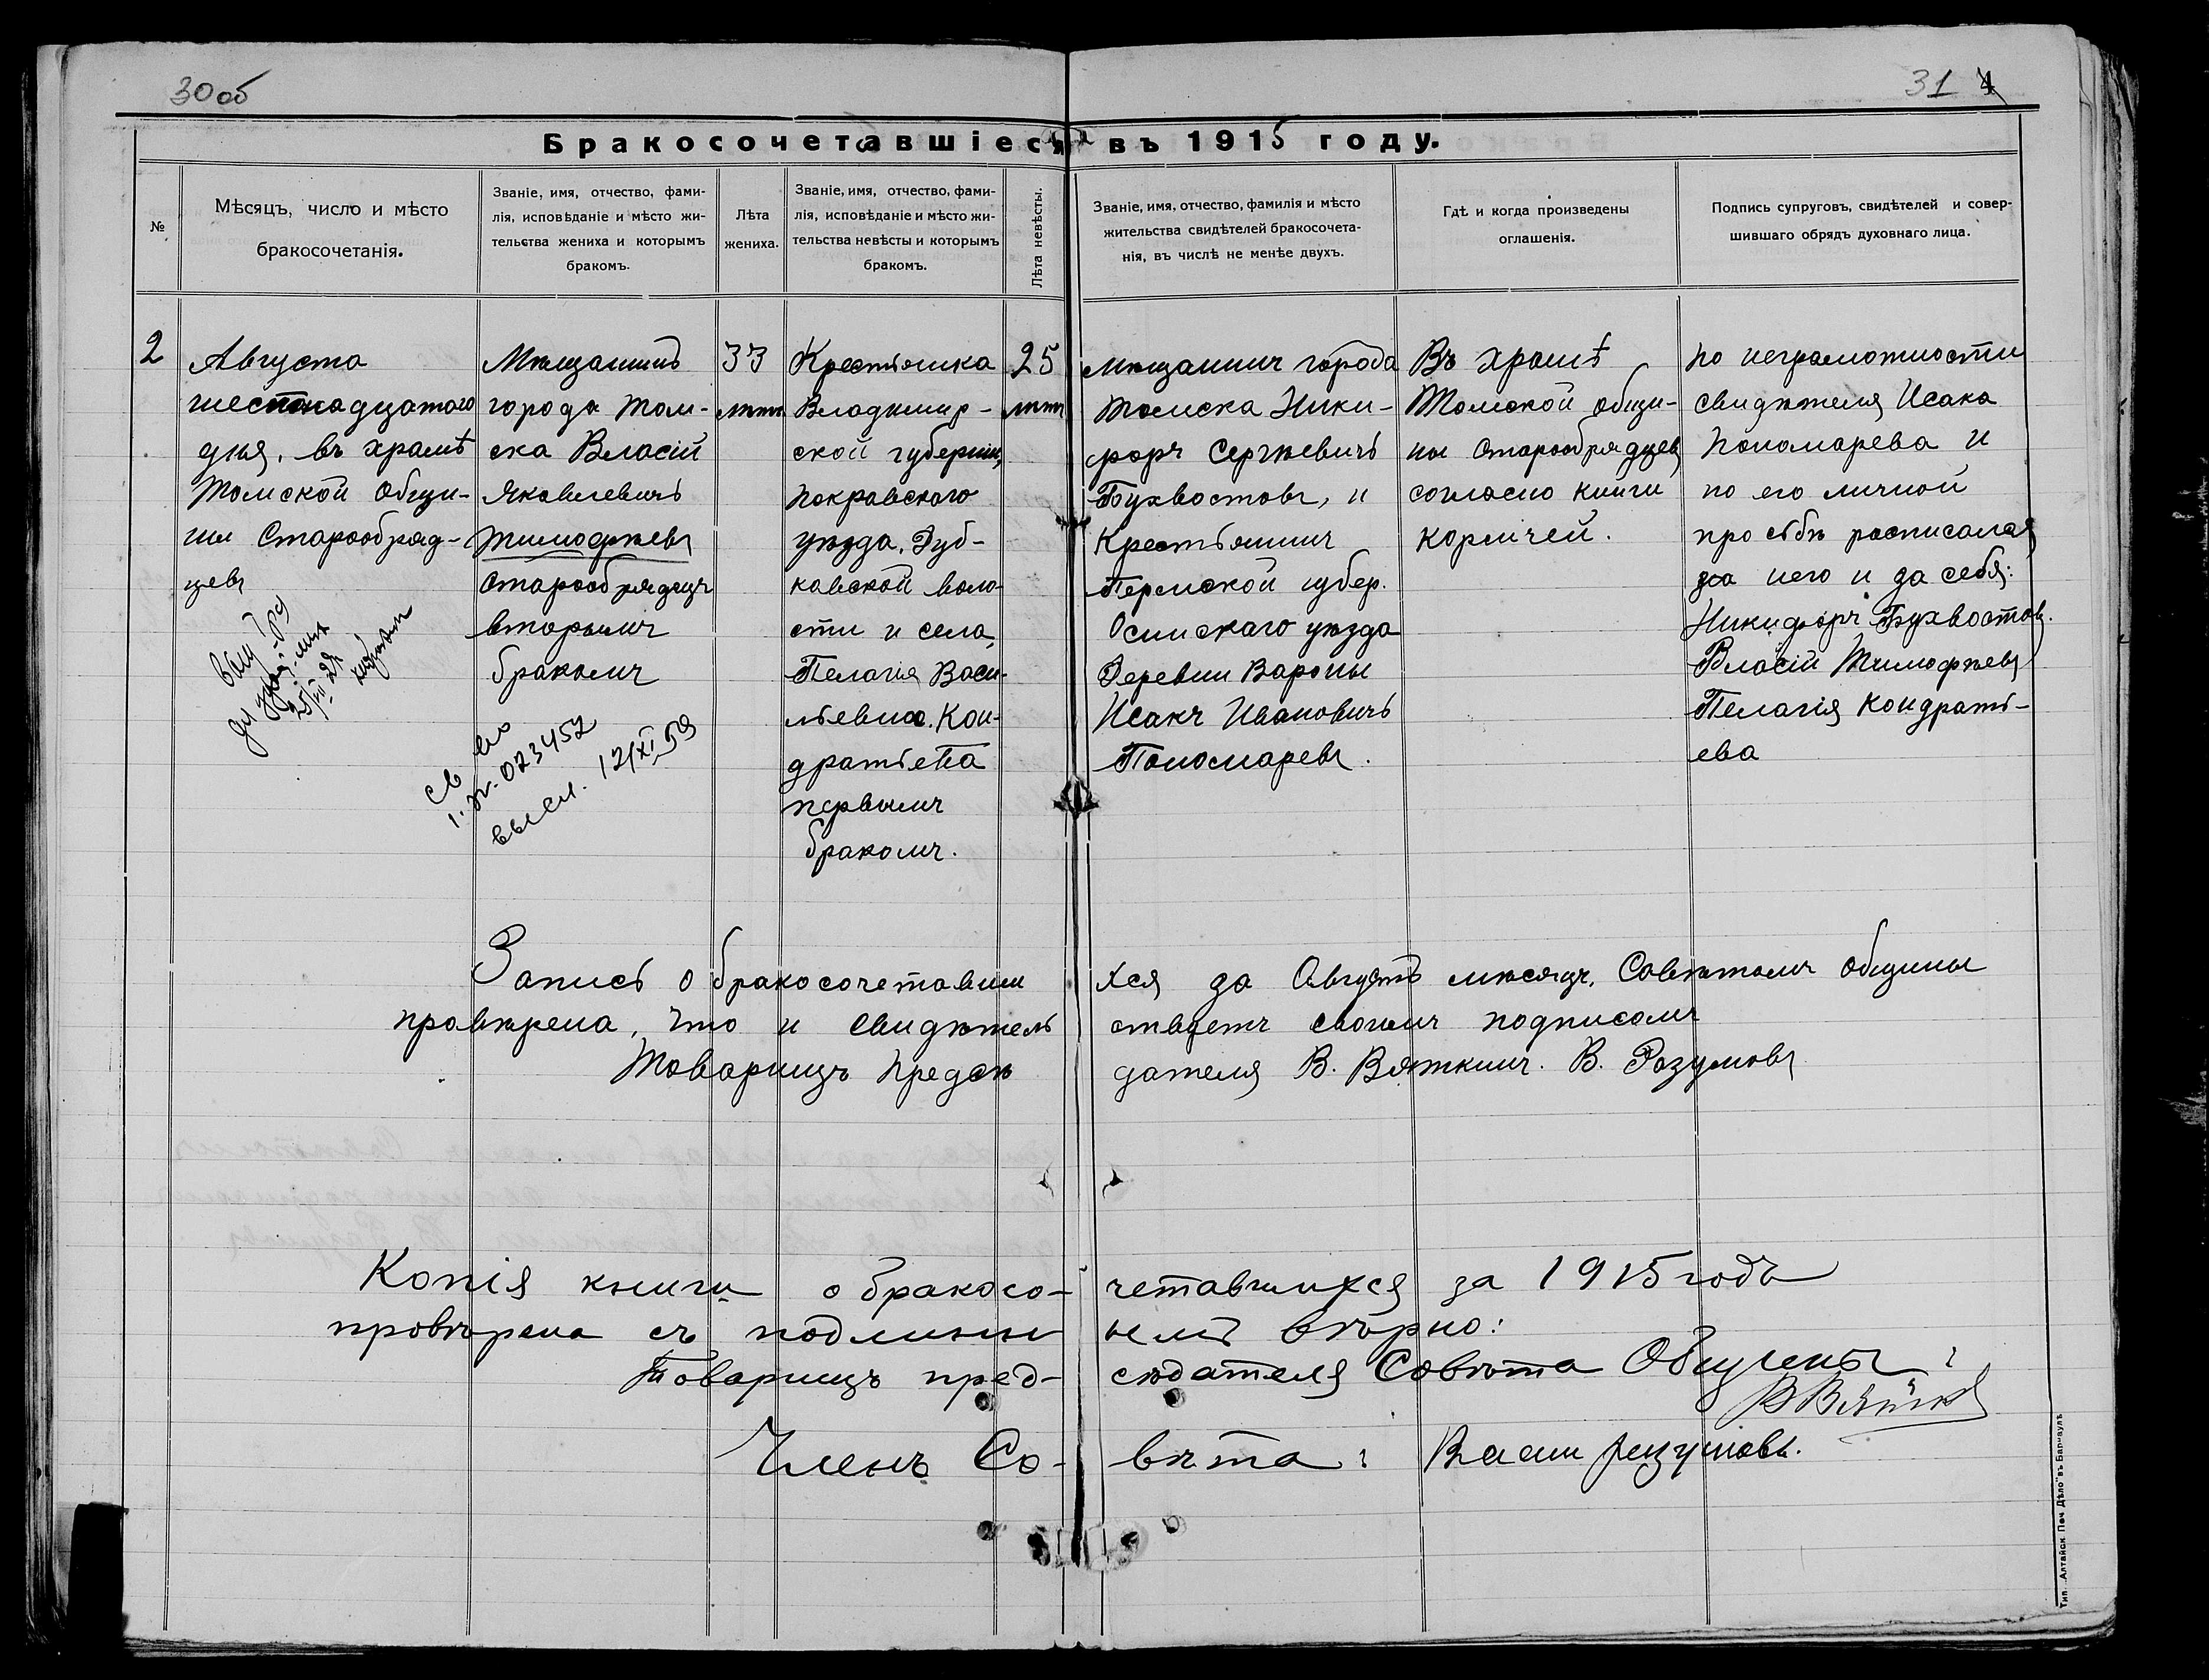 30 об
31 4
Бракосочетавшіеся въ 1915 году.
№
Мѣсяцъ, число и мѣсто
бракосочетанія.
Званіе, имя, отчество, фами-
лія, исповѣданіе и мѣсто жи-
тельства жениха и которымъ
бракомъ.
Лѣта
жениха.
Званіе, имя, отчество, фами-
лія, исповѣданіе и мѣсто жи-
тельства невѣсты и которымъ
бракомъ.
Лѣта невѣсты.
Званіе, имя, отчество, фамилія и мѣсто
жительства свидѣтелей бракосочета-
нія, въ числѣ не менѣе двухъ.
Гдѣ и когда произведены
оглашенія.
Подпись супруговъ, свидѣтелей и совер-
шившаго обрядъ духовнаго лица.
2
Августа
шестнадцатого
дня, въ храмѣ
Томской общи-
ны Старообряд-
цевъ
Мѣщанинъ
города Том-
ска Власій
Яковлевичъ
Тимофѣевъ
старообрядецъ
вторымъ
бракомъ
33
лѣтъ
Крестьянка
Владимир-
ской губерніи,
Покравского
уѣзда, Дуб-
кавской воло-
сти и села,
Пелагія Васи-
льевна Кон-
дратьева
первымъ
бракомъ.
25
лѣтъ
Мѣщанинъ города
Томска Ники-
форъ Сергѣевичъ
Бухвостовъ, и
Крестьянинъ
Пермской губер.
Осинскаго уѣзда
Деревни Вароны
Исакъ Ивановичъ
Пономаревъ.
Въ храмѣ
Томской общи-
ны Старообрядцевъ
согласно книги
кормчей.
По неграмотности
свидѣтеля Исака
Пономарева и
по его личной
просьбѣ расписался
за него и за себя:
Никифоръ Бухвостов.
Власій Тимофѣевъ
Пелагія Кондрать-
ева
св во
1. № 023452
высл. 12/XI 59
Запись о бракосочетавши хся за Августъ мѣсяцъ, Совѣтомъ общины
провѣрена, что и свидѣтель ствуетъ своимъ подписомъ
Товарищъ Предсѣ дателя В. Вяткинъ. В. Разумовъ
Копія книги о бракосо- четавшихся за 1915 годъ
провѣрена съ подлинни немъ вѣрно:
Товарищъ пред- сѣдателя Совѣта Общины:
Членъ Со- вѣта: Васи Разумовъ.
Тип. „Алтайск. Печ. Дѣло" въ Барнаулѣ